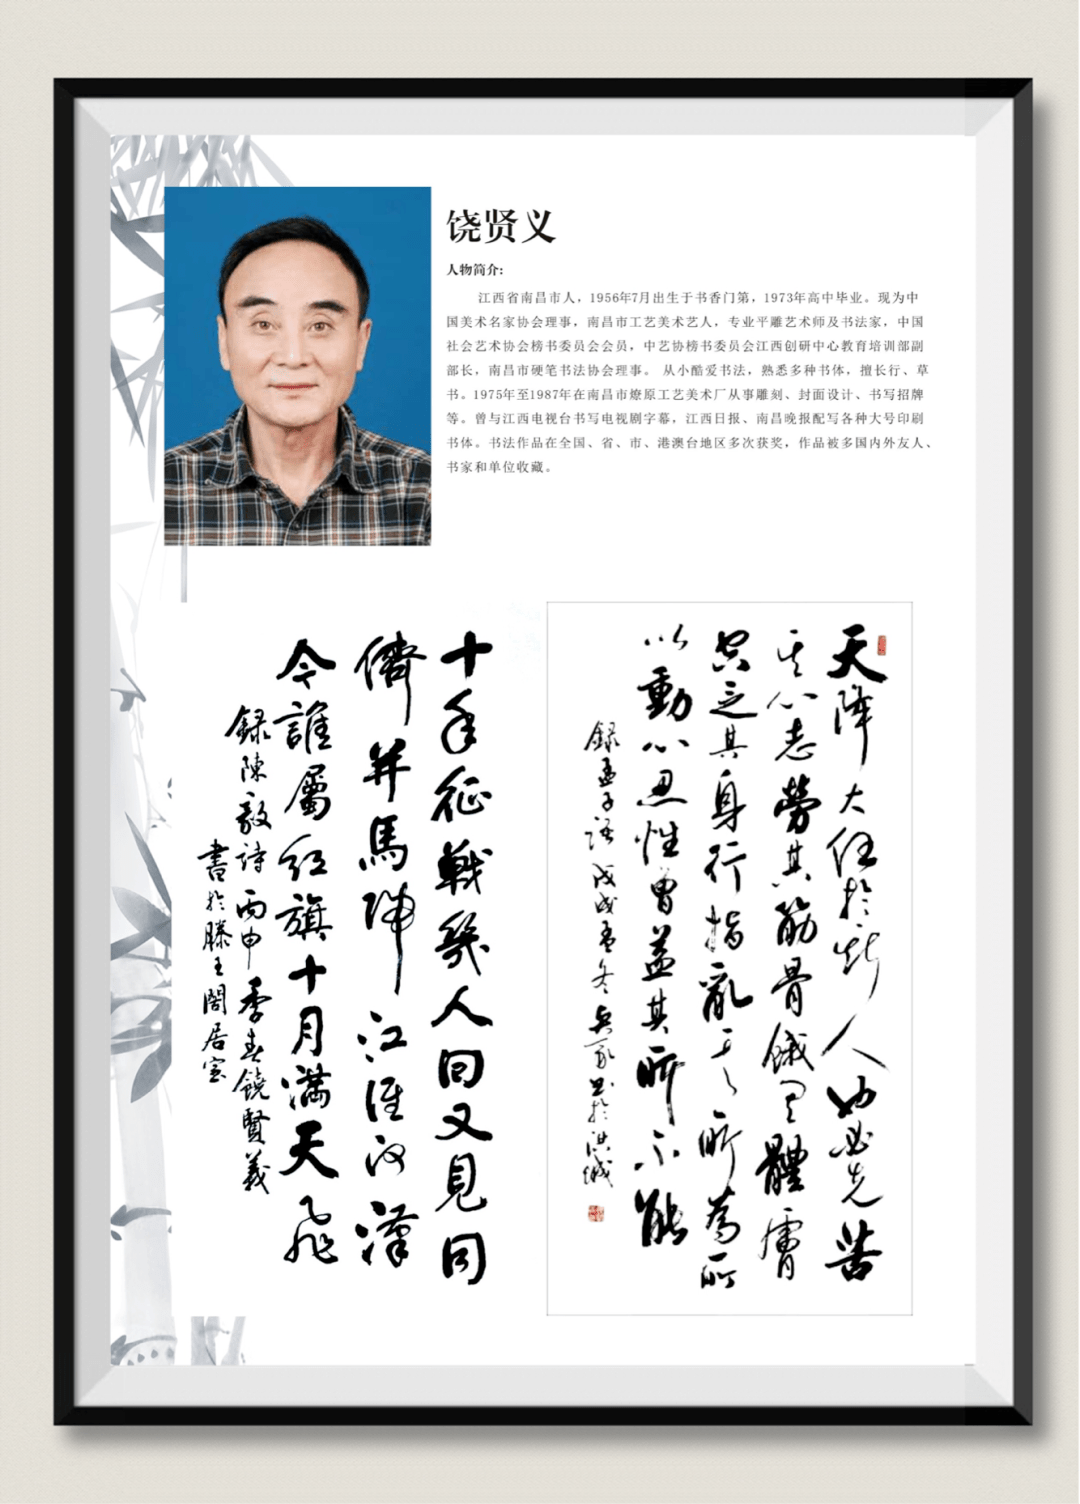 饶贤义
人物简介:
江西省南昌市人，1956年7月出生于书香门第，1973年高中毕业。现为中
国美术名家协会理事，南昌市工艺美术艺人，专业平雕艺术师及书法家，中国
社会艺术协会榜书委员会会员，中艺协榜书委员会江西创研中心教育培训部副
部长，南昌市硬笔书法协会理事。 从小酷爱书法，熟悉多种书体，擅长行、草
书。1975年至1987年在南昌市燎原工艺美术厂从事雕刻、封面设计、书写招牌
等。曾与江西电视台书写电视剧字幕，江西日报、南昌晚报配写各种大号印刷
书体。书法作品在全国、省、市、港澳台地区多次获奖，作品被多国内外友人、
书家和单位收藏。
十年征戰幾人回又見同
儕并馬歸江淮河漢
今誰屬紅旗十月滿天飛
録陳毅詩丙申季春饒賢義
書於滕王閣居室
天降大任於斯人也必先苦
其心志勞其筋骨餓其體膚
空乏其身行指亂其所為所
以動心忍性曾益其所不能
録孟子語戊戌孟冬
書於洪城